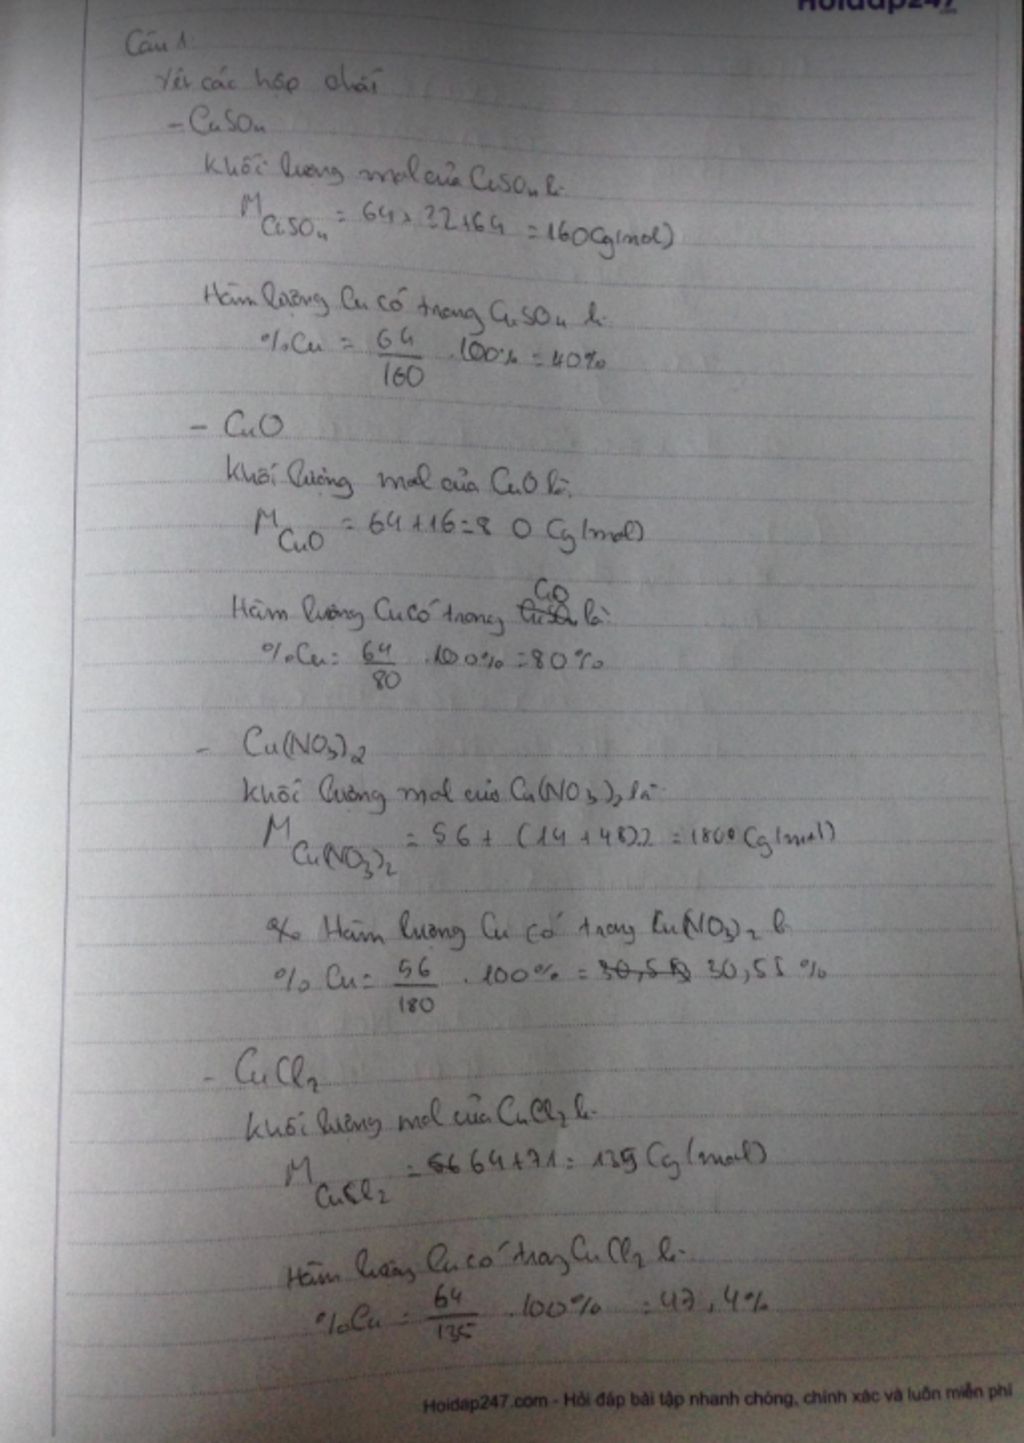 Hoidap247
Câu 1
Xét các hợp chất
- CuSO4
Khối lượng mol của CuSO4 là
M CuSO4 = 64+32+64 = 160(g/mol)
Hàm lượng Cu có trong CuSO4 là:
%Cu = 64/160 .100% = 40%
- CuO
Khối lượng mol của CuO là:
M CuO = 64+16=80 (g/mol)
CuO
Hàm lượng Cu có trong CuSO4 là:
%Cu = 64/80 .100% = 80%
- Cu(NO3)2
Khối lượng mol của Cu(NO3)2 là
M Cu(NO3)2 = 56 + (14+48).2 = 180 (g/mol)
% Hàm lượng Cu có trong Cu(NO3)2 là
% Cu = 56/180 . 100% = 30,55 %
- CuCl2
Khối lượng mol của CuCl2 là
M CuCl2 = 64+71 = 135 (g/mol)
Hàm lượng Cu có trong CuCl2 là
%Cu = 64/135 .100% = 47,4%
Hoidap247.com - Hỏi đáp bài tập nhanh chóng, chính xác và luôn miễn phí